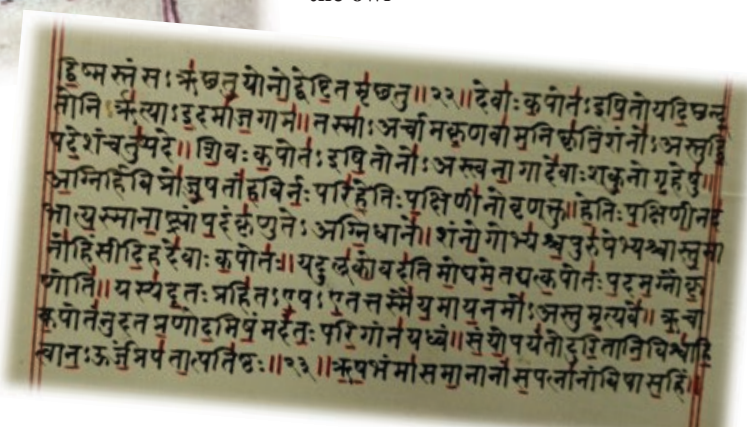 the owl
द्विष्म स्तं स ऽऋछतु यो नो द्वेष्टि त मृछतु॥२२॥ देवाः कपोत ऽइषितो यदिछन्दू
तो निर्ऋत्या ऽइदमाजगाम॥ तस्मा ऽअर्चाम कृणवाम निष्कृतिं शं नो ऽअस्तु द्वि
पदे शं चतुष्पदे॥ शिवः कपोत ऽइषितो नो ऽअस्त्वनागा देवाः शकुनो गृहेषु॥
अग्निर्हि विप्रो जुषतां हविर्नः परि हेतिः पक्षिणी नो वृणक्तु॥ हेतिः पक्षिणी न द
भात्यस्मानाष्ट्र्यां पदं कृणुते ऽअग्निधाने॥ शं नो गोभ्यश्च पुरुषेभ्यश्चास्तु मा
नो हिंसीदिह देवाः कपोतः॥ यदुलूको वदति मोघमेतद्यत्कपोतः पदमग्नौ कृ
णोति॥ यस्य दूतः प्रहित ऽएष ऽएतत्तस्मै यमाय नमो ऽअस्तु मृत्यवे॥ ऋचा
कपोतं नुदत प्रणोदमिषं मदंतः परि गां नयध्वं॥ संयोपयंतो दुरितानि विश्वा हि
त्वा न ऽऊर्जं प्रपतात्पतिष्ठः॥२३॥ ऋषभं मा समानानां सपत्नानां विषासहिं॥